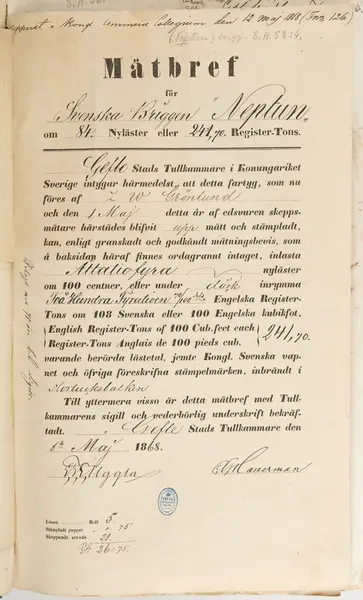 S.H. 58:
Uppvist i Kongl. Commerce Collegium den 12 Maj 1868 (Tnr 126)
(Neptun) brigg. S.H. 58:4.
Mätbref
för
Svenska Briggen "Neptun"
om 84 Nyläster eller 241,70 Register-Tons.
Gefle Stads Tullkammare i Konungariket
Sverige intygar härmedelst, att detta fartyg, som nu
föres af W Grönlund
och den 1 Maj detta år af edsvuren skepps-
mätare härstädes blifvit upp mätt och stämpladt,
kan, enligt granskadt och godkändt mätningsbevis, som
å baksidan häraf finnes ordagrannt intaget, inlasta
Attatiofyra nyläster
om 100 centner, eller under däck inrymma
Två Hundra Fyratioen 70/100 dels Engelska Register-
Tons om 108 Svenska eller 100 Engelska kubikfot.
English Register-Tons of 100 Cub. feet each
Register-Tons Anglais de 100 pieds cub.
241,70.
varande berörda lästetal, jemte Kongl. Svenska vap-
net och öfriga föreskrifna stämpelmärken, inbrändt i
Storluckebalken
Till yttermera visso är detta mätbref med Tull-
kammarens sigill och vederbörlig underskrift bekräf-
tadt. Gefle Stads Tullkammare den
6te Maj 1868.
Uggla
Hauerman
Lösen Rdr 5.
Stämpladt papper " 75
Skeppsmät. arvode 21.
26:75.